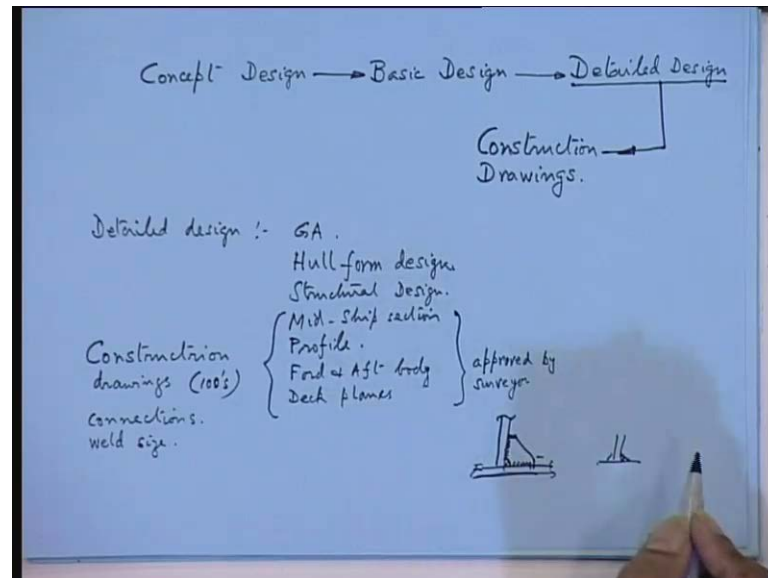 Concept Design → Basic Design → Detailed Design
Construction
Drawings.
Detailed design :- GA.
Hull form design.
Structural Design.
Mid-Ship section
Profile.
Ford & Aft body
Deck planes
Construction
drawings (100's)
connections.
weld size.
approved by
surveyor